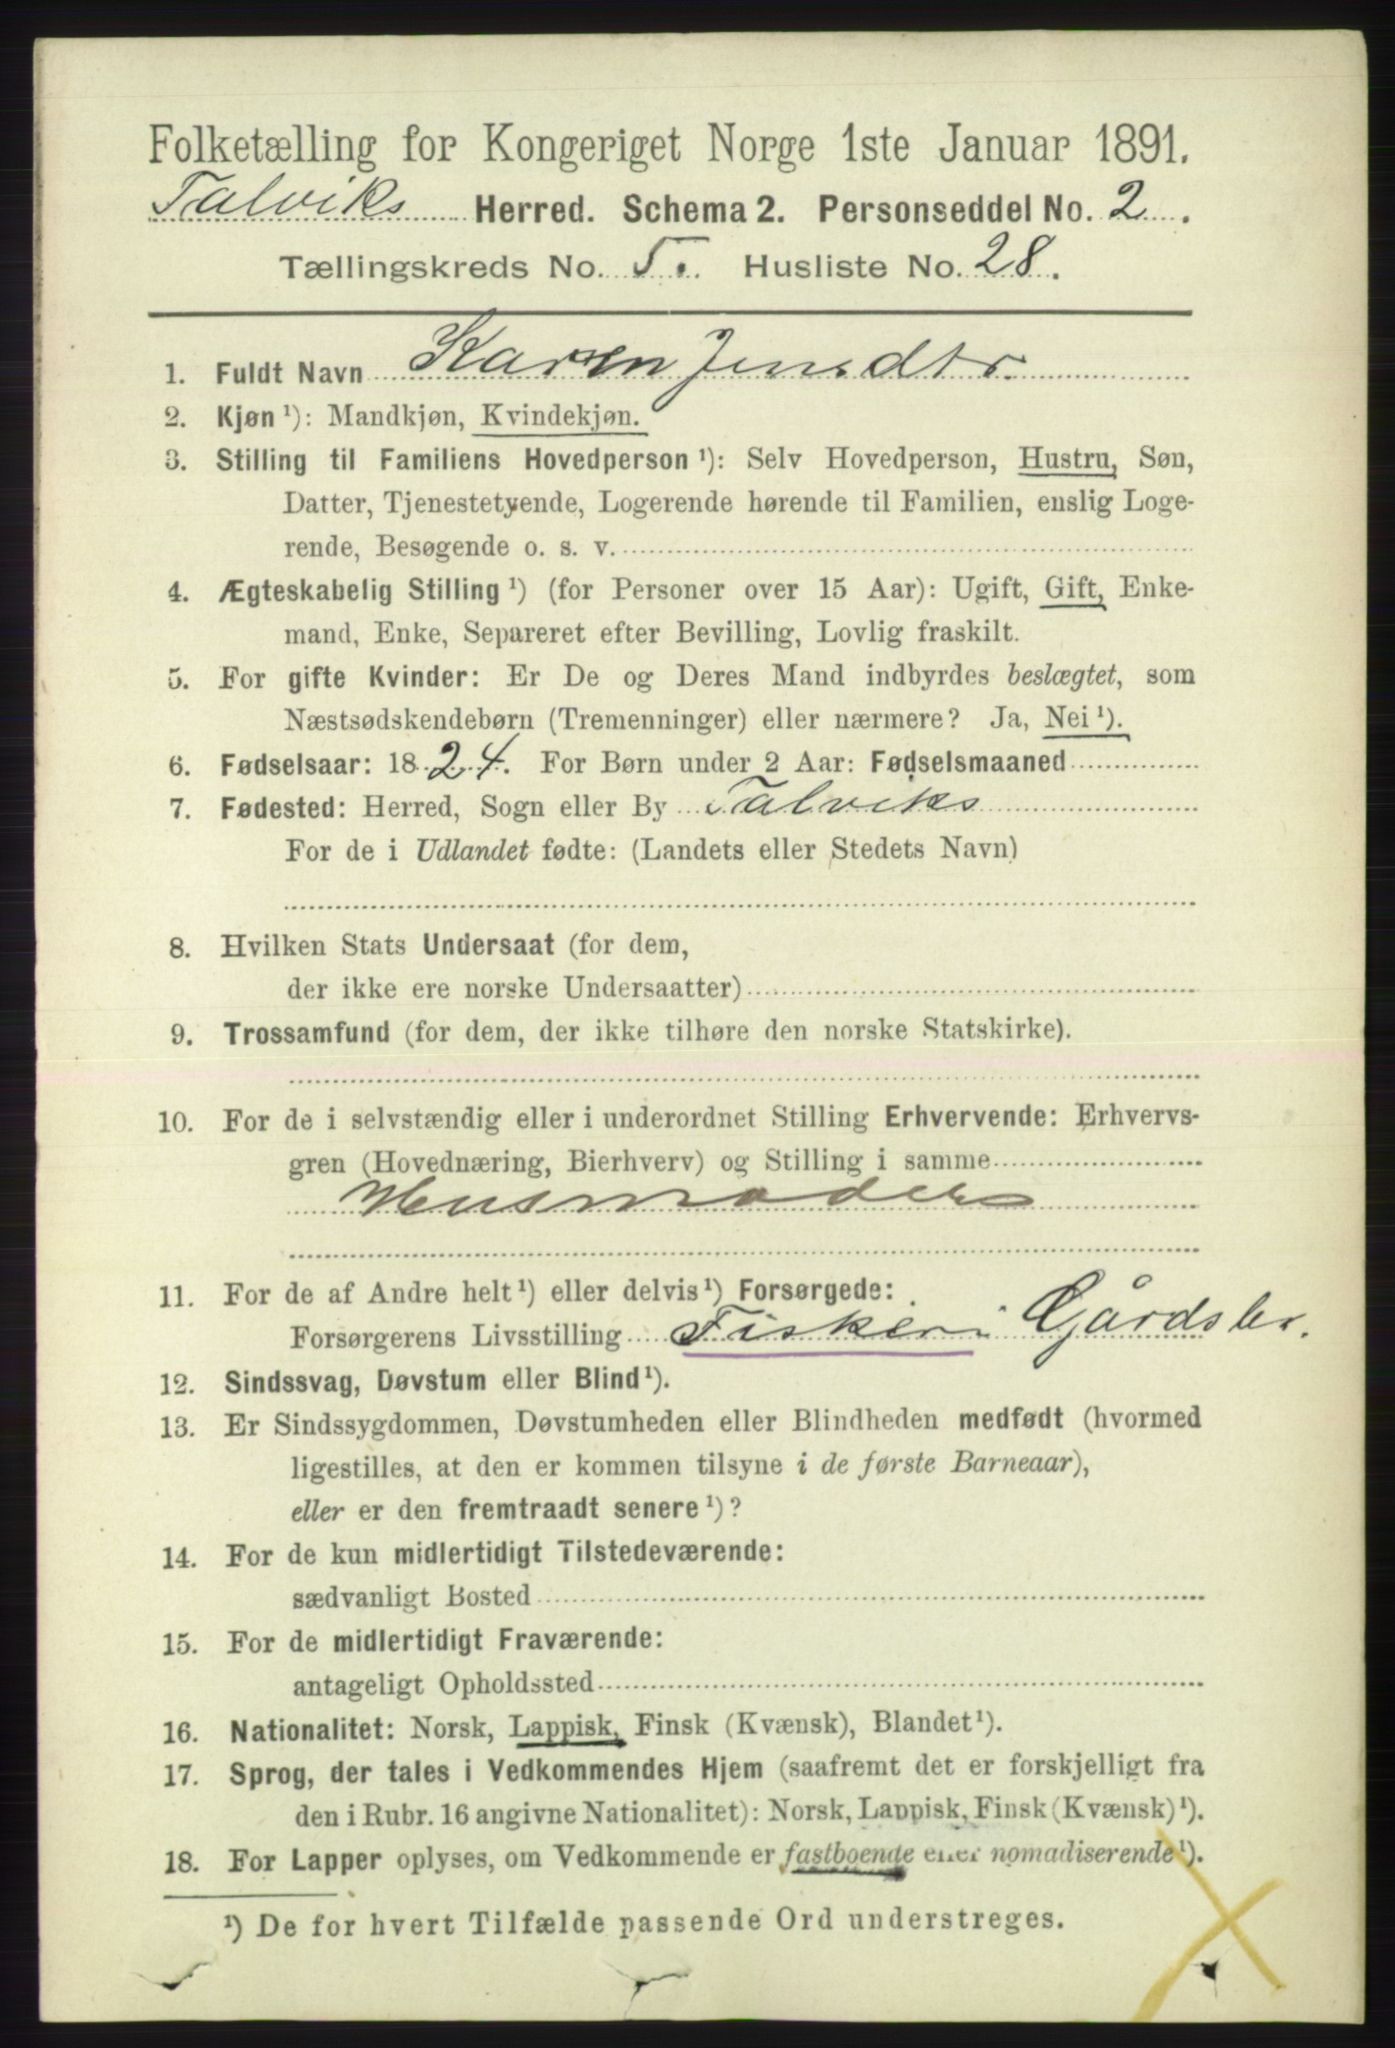 Folketælling for Kongeriget Norge 1ste Januar 1891.
Talviks Herred. Schema 2. Personseddel No. 2.
Tællingskreds No. 5. Husliste No. 28.
1. Fuldt Navn Karen Jensdtr.
2. Kjøn ¹): Mandkjøn, Kvindekjøn.
3. Stilling til Familiens Hovedperson ¹): Selv Hovedperson, Hustru, Søn,
Datter, Tjenestetyende, Logerende hørende til Familien, enslig Loge-
rende, Besøgende o. s. v.
4. Ægteskabelig Stilling ¹) (for Personer over 15 Aar): Ugift, Gift, Enke-
mand, Enke, Separeret efter Bevilling, Lovlig fraskilt.
5. For gifte Kvinder: Er De og Deres Mand indbyrdes beslægtet, som
Næstsødskendebørn (Tremenninger) eller nærmere? Ja, Nei ¹).
6. Fødselsaar: 1824. For Børn under 2 Aar: Fødselsmaaned
7. Fødested: Herred, Sogn eller By Talviks
For de i Udlandet fødte: (Landets eller Stedets Navn)
8. Hvilken Stats Undersaat (for dem,
der ikke ere norske Undersaatter)
9. Trossamfund (for dem, der ikke tilhøre den norske Statskirke).
10. For de i selvstændig eller i underordnet Stilling Erhvervende: Erhvervs-
gren (Hovednæring, Bierhverv) og Stilling i samme
Husmoder
11. For de af Andre helt ¹) eller delvis ¹) Forsørgede:
Forsørgerens Livsstilling Fisker i Gårdsbr.
12. Sindssvag, Døvstum eller Blind ¹).
13. Er Sindssygdommen, Døvstumheden eller Blindheden medfødt (hvormed
ligestilles, at den er kommen tilsyne i de første Barneaar),
eller er den fremtraadt senere ¹)?
14. For de kun midlertidigt Tilstedeværende:
sædvanligt Bosted
15. For de midlertidigt Fraværende:
antageligt Opholdssted
16. Nationalitet: Norsk, Lappisk, Finsk (Kvænsk), Blandet ¹).
17. Sprog, der tales i Vedkommendes Hjem (saafremt det er forskjelligt fra
den i Rubr. 16 angivne Nationalitet): Norsk, Lappisk, Finsk (Kvænsk) ¹).
18. For Lapper oplyses, om Vedkommende er fastboende eller nomadiserende ¹).
¹) De for hvert Tilfælde passende Ord understreges.